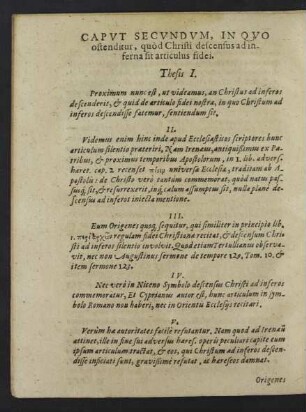 CAPVT SECVNDVM, IN QVO
ostenditur, quòd Christi descensus ad in-
ferna sit articulus fidei.
Thesis I.
Proximum nunc est, ut videamus, an Christus ad inferos
descenderit, & quid de articulo fidei nostræ, in quo Christum ad
inferos descendisse fatemur, sentiendum sit,
II.
Videmus enim hinc inde apud Ecclesiasticos scriptores hunc
articulum silentio præteriri, Nam Irenæus, antiquissimus ex Pa-
tribus, & proximus temporibus Apostolorum, in 1. lib. advers.
hæret. cap. 2. recenset universa Ecclesia, traditam ab A-
postolis: de Christo verò tantùm commemorat, quòd natus pas-
susq́; sit, & resurrexerit, inq́; cælum assumptus sit, nulla planè de-
scensus ad inferos iniecta mentione.
III.
Eum Origenes quoq; sequitur, qui similiter in principio lib.
1. regulam fidei Christianæ recitat, & descensum Chri-
sti ad inferos silentio involvit. Quod etiam Tertullianus observa-
vit, nec non Augustinus sermone de tempore 119, Tom. 10. &
item sermone 129.
IV.
Nec verò in Niceno Symbolo descensus Christi ad inferos
commemoratur, Et Cyprianus autor est, hunc articulum in sym-
bolo Romano non haberi, nec in Orientis Ecclesijs recitari.
V.
Verùm hæ autoritates facilè refutantur, Nam quod ad Irenæũ
attinet, ille in fine sui adversus hæres. operis peculiari capite eum
ipsum articulum tractat, & eos, qui Christum ad inferos descen-
disse inficiati sunt, gravissimè refutat, ac hæreseos damnat.
Origenes